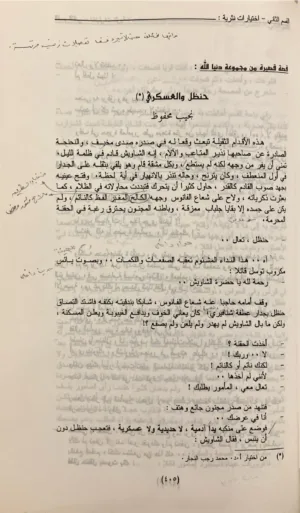 القسم الثاني - اختيارات نثرية :
قصة قصيرة من مجموعة دنيا الله :
حنظل والعسكري (*)
نجيب محفوظ
هذه الأقدام الثقيلة تبعث وقعا له في صدره صدى مخيف، والنحنحة
الصادرة عن صاحبها نذير المتاعب والآلام، إنه الشاويش قادم في ظلمة الليل،
تمنى أن يفر من وجهه لكنه لم يستطع، وبكل مشقة قام وهو يلقي بثقله على الجدار
في أول المنعطف، وكان يترنح، وحاله تنذر بالانهيار في أية لحظة، وفتح عينيه
بجهد صوب القائم كالقدر، حاول كثيرا أن يتحرك فتبددت محاولاته في الظلام، كما
بعثرت ذكرياته، ولاح على شعاع الفانوس وجهه الكالح المغبر الفظ كالنائم، ولم
يكن على جسده إلا بقايا جلباب ممزقة، وباطنه المجنون يحترق رغبة في الحقنة
المحرمة.
حنظل ، تعال ..
آه .. هذا النداء المشئوم تعقبه الصفعات واللكمات .. وبصوت يائس
مكروب توسل قائلا :
رحمة لله يا حضرة الشاويش ..
وقف أمامه حاجبا عنه شعاع الفانوس، شابكا بندقيته بكتفه فاشتد التصاق
حنظل بجدار عطفة شنافيري، كان يعاني الخوف ويدافع الغيبوبة ويعلن المسكنة ،
ولكن ما بال الشاويش لم يهدر ولم يلعن ولم يصفع ؟!
- أخذت الحقنة ؟
- لا .. وربك !
- لكنك نائم أو كالنائم !
- لأني لم آخذها ..
- تعال معي ، المأمور يطلبك !
فتنهد من صدر مجنون جائع وهتف :
- أنا في عرضك ..
فوضع على منكبه يدا آدمية ، لا حديدية ولا عسكرية ، فتعجب حنظل دون
أن ينبس ، فقال الشاويش :
(*) من اختيار أ.د. محمد رجب النجار .
(٤٠٥)